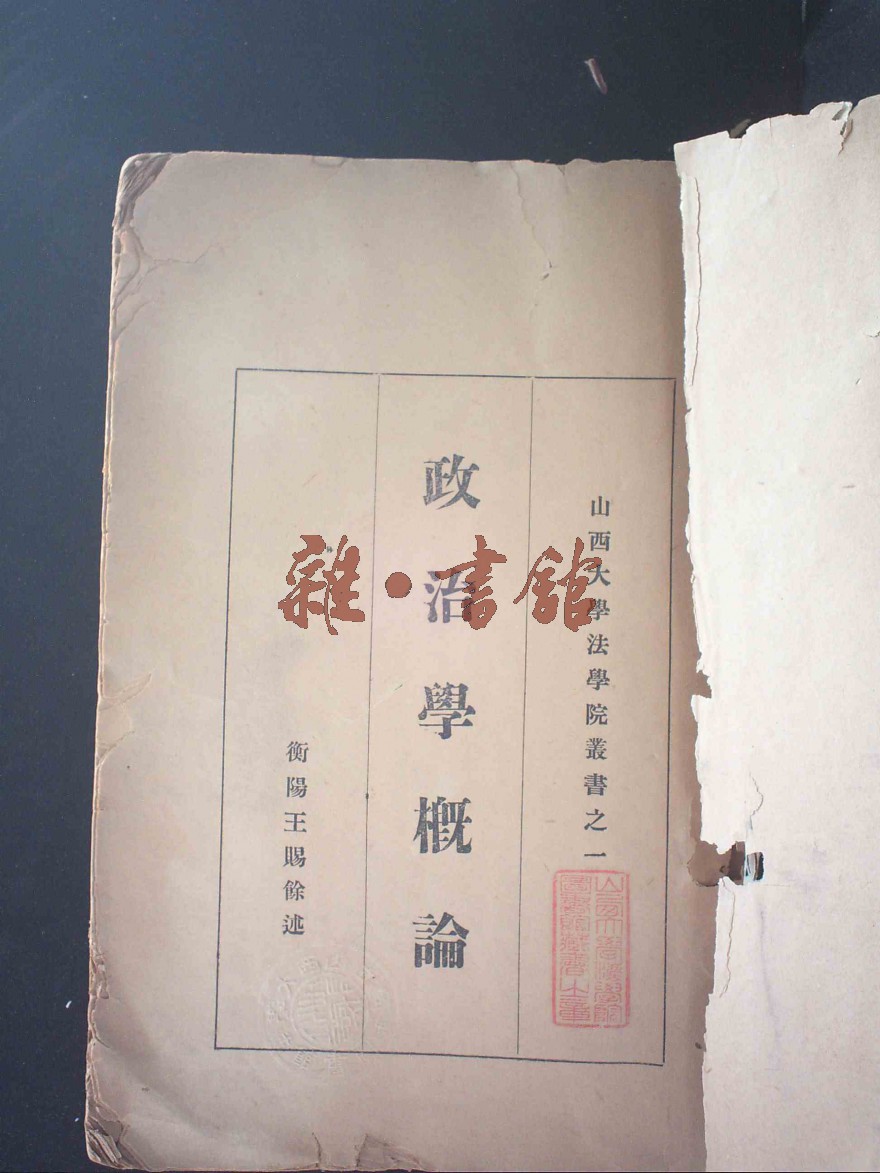 山西大學法學院叢書之一
政治學概論
衡陽王賜餘述
雜·書館